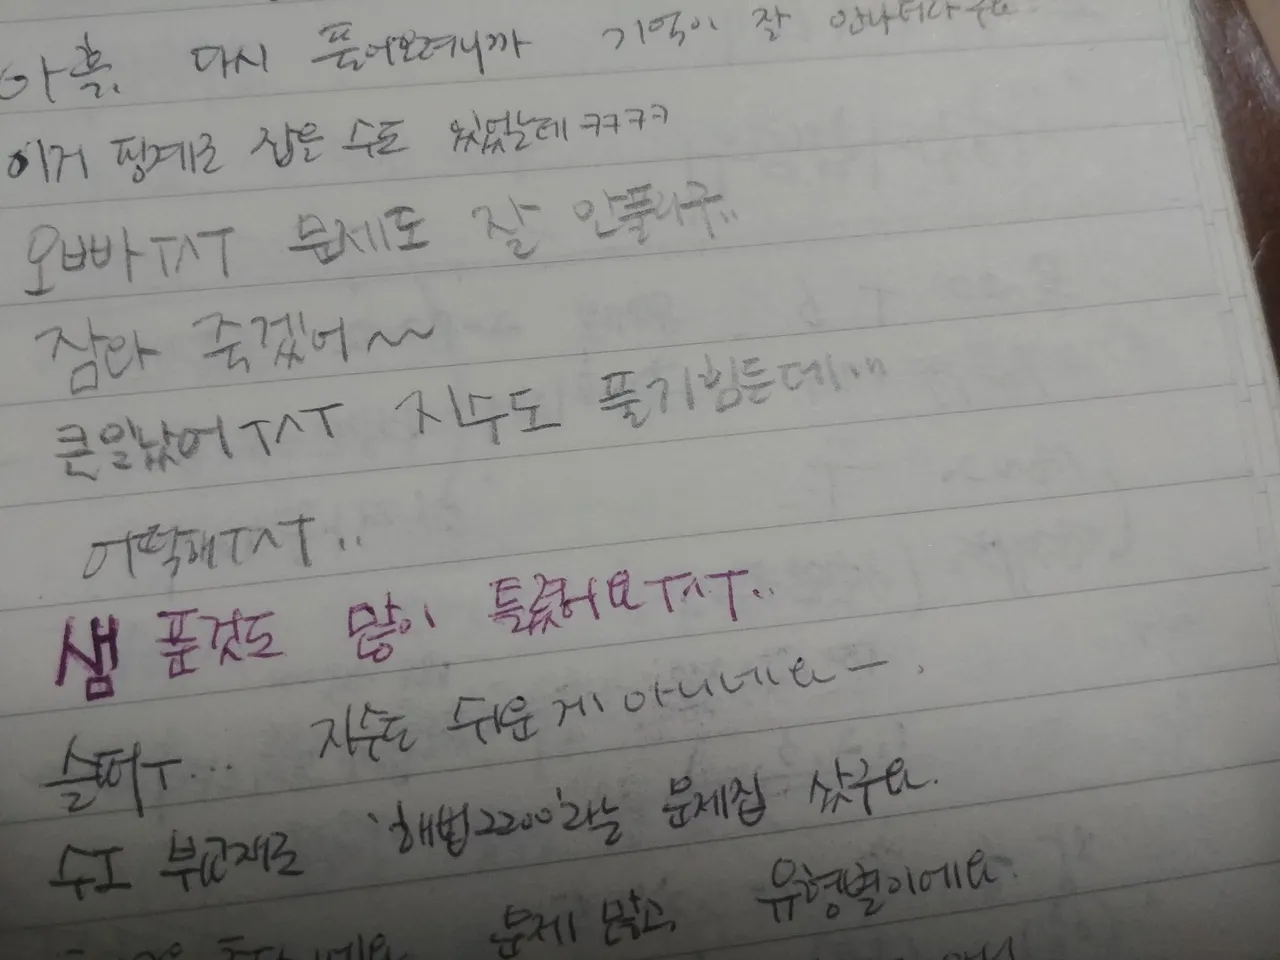 아흑. 다시 풀어보려니까 기억이 잘 안나더라구요
이거 핑계로 잡을 수도 있었는데 ㅋㅋㅋㅋ
오빠ㅜㅅㅜ 문제도 잘 안풀리구..
잠와 죽겠어~~
큰일났어ㅜㅅㅜ 지수도 풀기힘든데...
어떡해ㅜㅅㅜ..
샘 푼것도 많이 틀렸어요ㅜㅅㅜ..
슬퍼ㅜ... 지수도 쉬운게 아니네요ㅡ.
수Ⅰ 부교재로 '해법2200'라는 문제집 샀구요.
문제 많고, 유형별이에요.